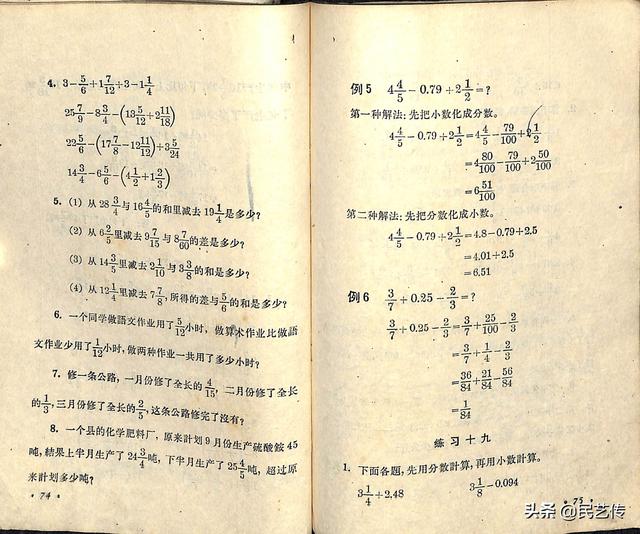 4. 3-5/6+1 7/12+3-1 1/4
25 7/9-8 3/4-(13 5/12+2 11/18)
22 5/6-(17 7/8-12 11/12)+3 5/24
14 3/4-6 5/6-(4 1/2+1 2/3)
5. (1) 从28 3/4与16 4/5的和里减去19 1/4是多少?
(2) 从6 2/5里减去9 7/15与8 7/60的差是多少?
(3) 从14 3/5里减去2 1/10与3 3/8的和是多少?
(4) 从12 1/4里减去7 7/8,所得的差与5/6的和是多少?
6. 一个同学做語文作业用了5/12小时,做算术作业比做語
文作业少用了1/12小时,做两种作业一共用了多少小时?
7. 修一条公路,一月份修了全长的4/15,二月份修了全长
的1/3,三月份修了全长的2/5,这条公路修完了沒有?
8. 一个县的化学肥料厂,原来計划9月份生产硫酸銨45
吨,結果上半月生产了24 3/4吨,下半月生产了25 4/5吨,超过原
来計划多少吨?
• 74 •
例5 4 4/5-0.79+2 1/2=?
第一种解法:先把小数化成分数。
4 4/5-0.79+2 1/2=4 4/5-79/100+2 1/2
=4 80/100-79/100+2 50/100
=6 51/100
第二种解法:先把分数化成小数。
4 4/5-0.79+2 1/2=4.8-0.79+2.5
=4.01+2.5
=6.51
例6 3/7+0.25-2/3=?
3/7+0.25-2/3=3/7+25/100-2/3
=3/7+1/4-2/3
=36/84+21/84-56/84
=1/84
练习十九
1. 下面各题,先用分数計算,再用小数計算。
3 1/4+2.48 3 1/8-0.094
• 75 •
头条 @民艺传